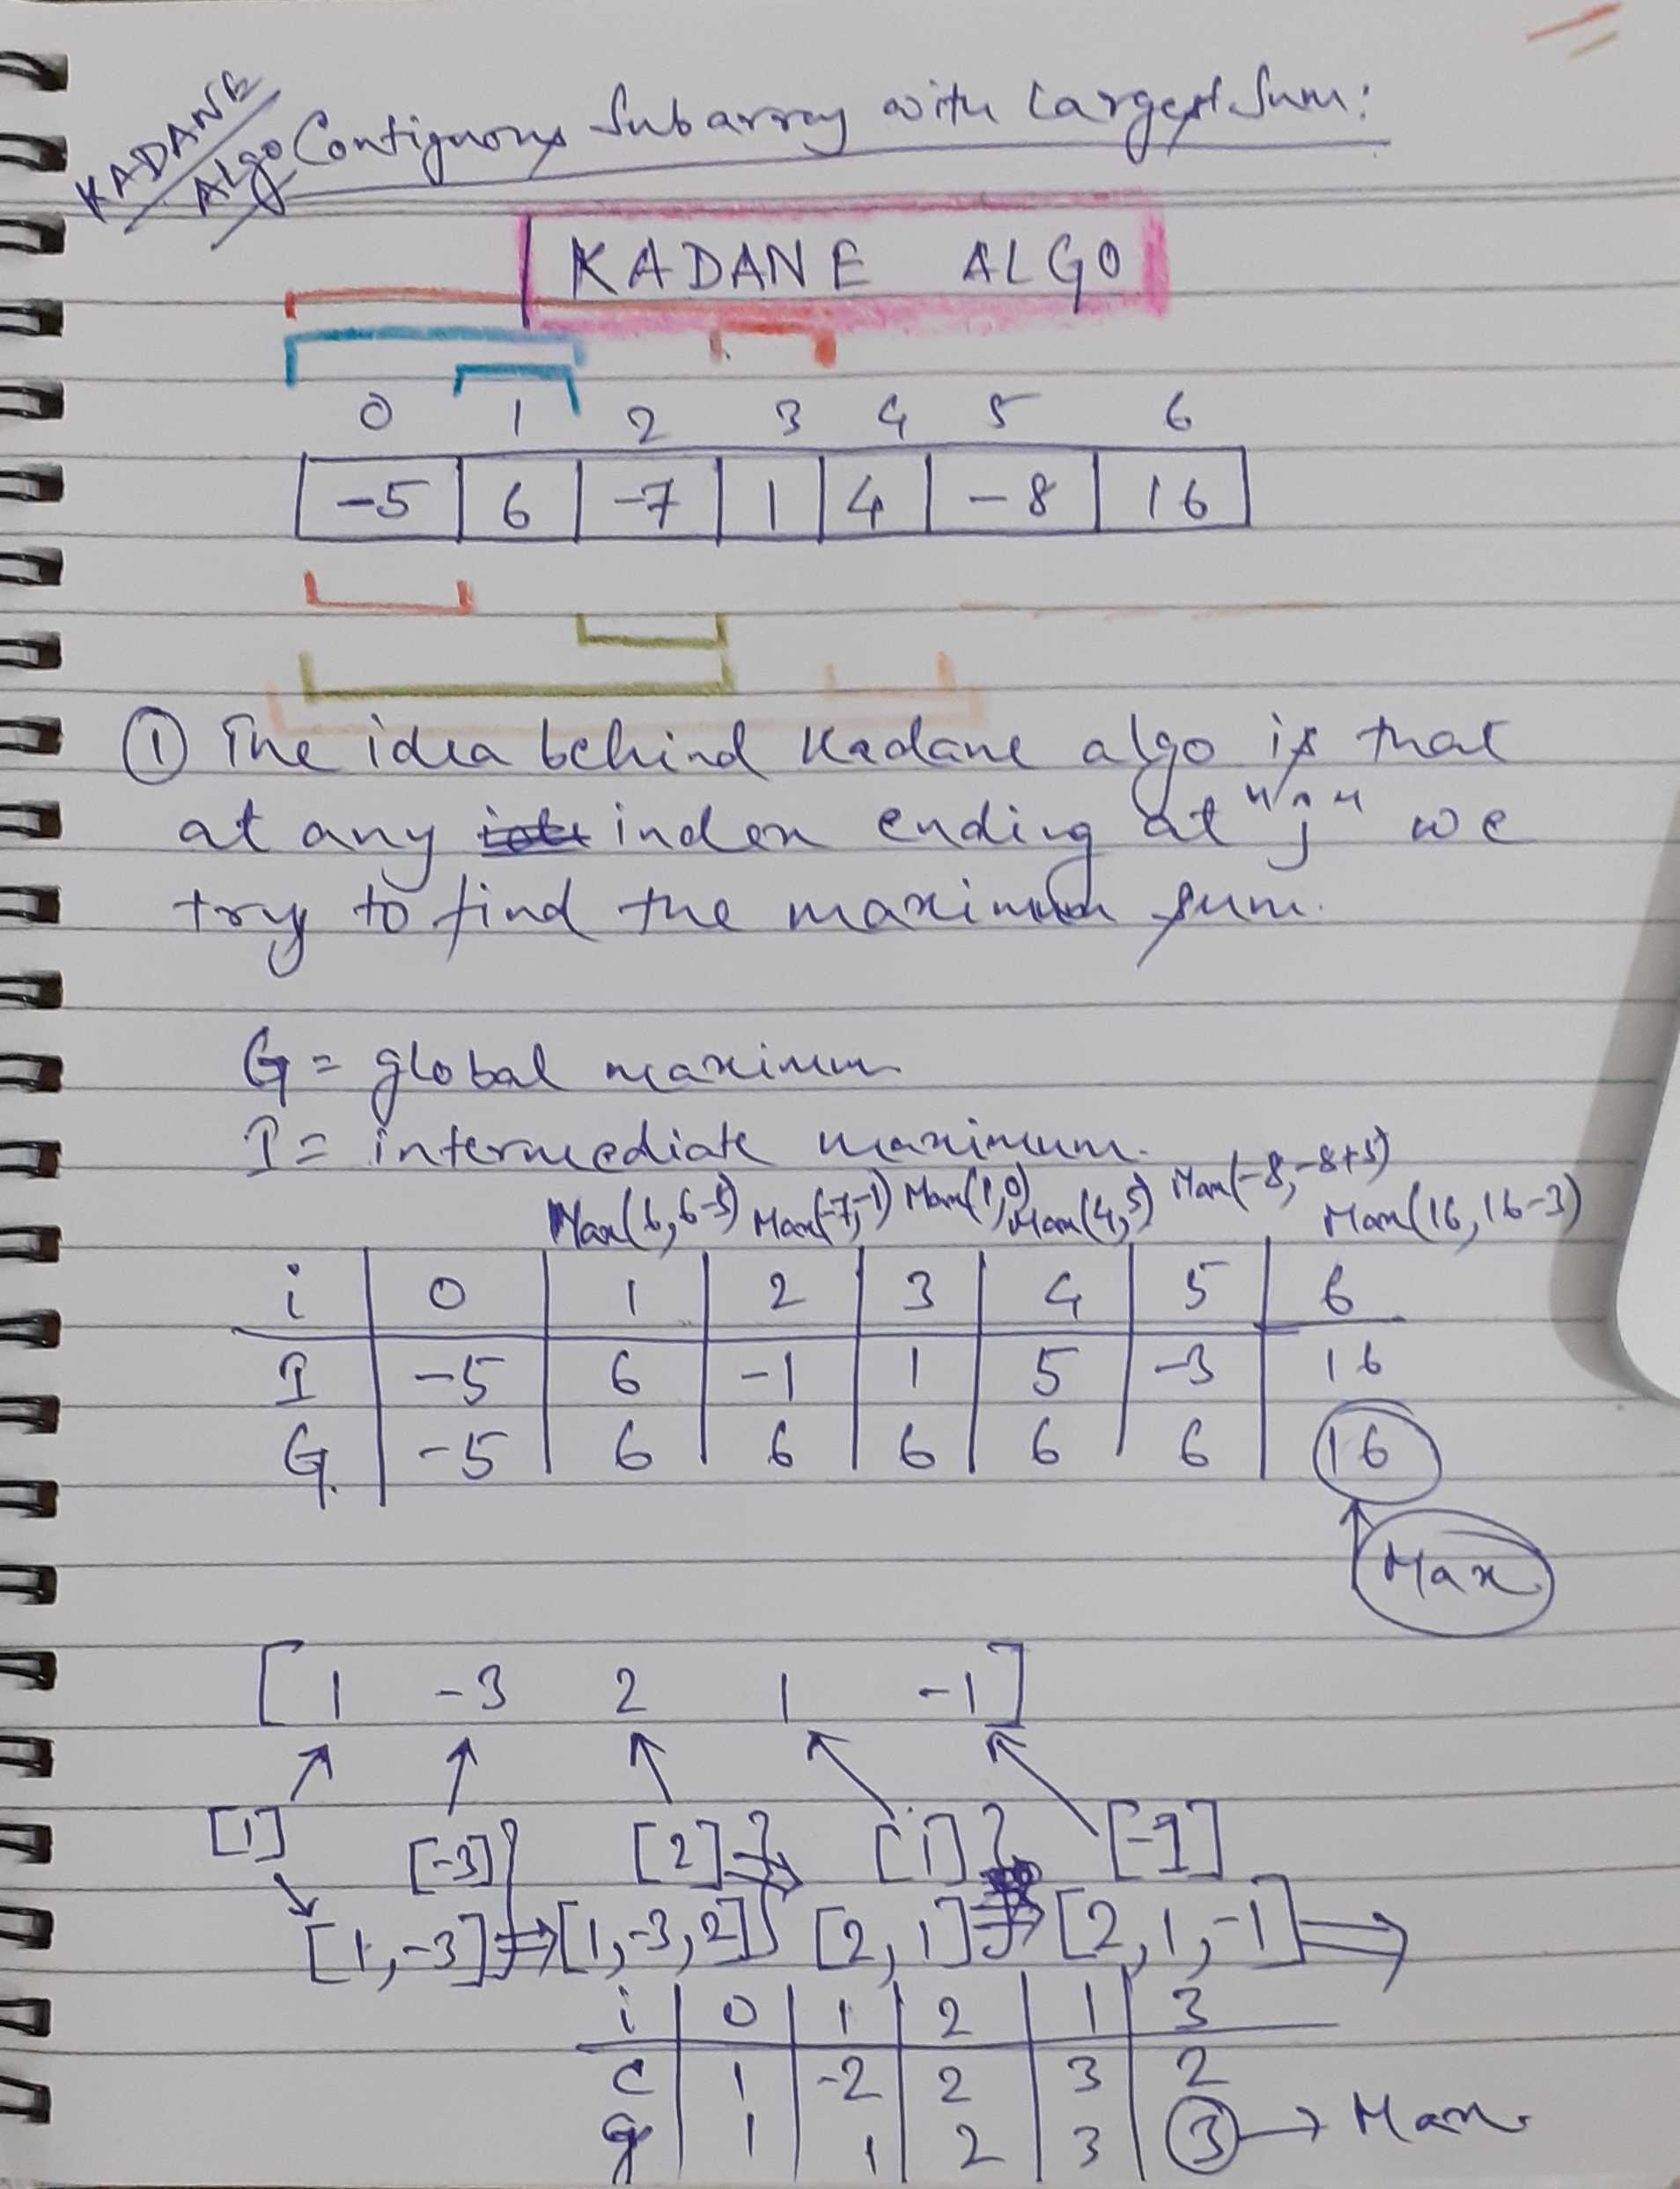 KADANE
Algo
Contiguous Subarray with Largest Sum:
KADANE ALGO
0 1 2 3 4 5 6
-5 6 -7 1 4 -8 16
① The idea behind Kadane algo is that
at any index ending at "j" we
try to find the maximum sum.
G = global maximum
I = intermediate maximum.
Max(6, 6-5) Max(-7,-1) Max(1,0) Max(4,5) Max(-8,-8+5) Max(16, 16-3)
i 0 1 2 3 4 5 6
I -5 6 -1 1 5 -3 16
G -5 6 6 6 6 6 16
Max
[1 -3 2 1 -1]
[1] [-3] [2] [1] [-1]
[1,-3] ⇒ [1,-3,2] [2,1] ⇒ [2,1,-1] ⇒
i 0 1 2 1 3
c 1 -2 2 3 2
g 1 1 2 3 3 → Max